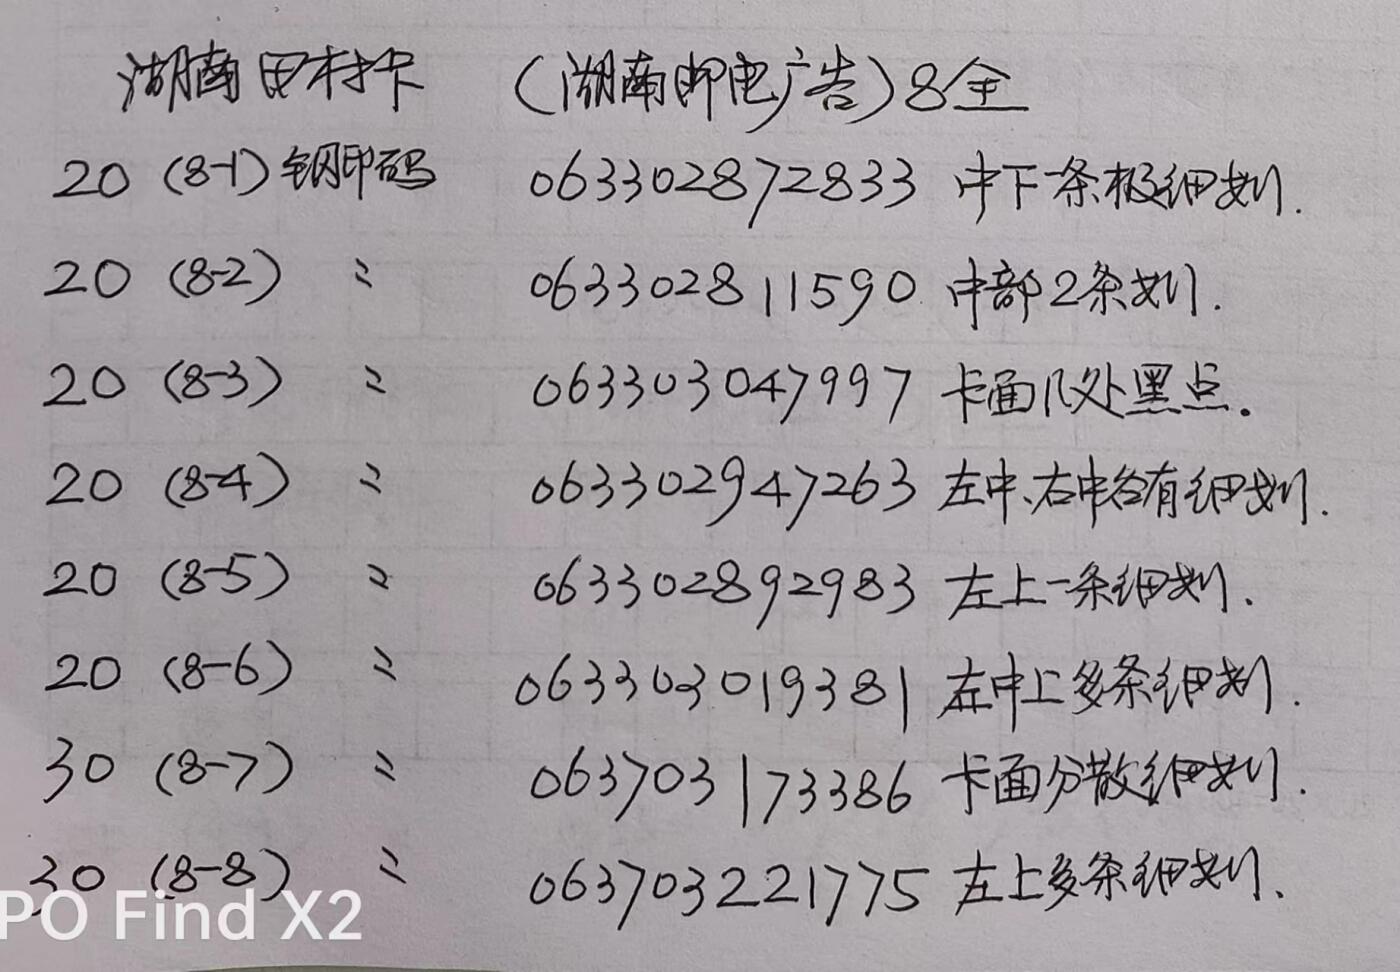 湖南田村卡 (湖南邮电广告)8全
20 (8-1) 钢印码 063302872833 中下一条极细划.
20 (8-2) 〃 063302811590 中部2条划.
20 (8-3) 〃 063303047997 卡面几处黑点.
20 (8-4) 〃 063302947263 左中、右中各有细划.
20 (8-5) 〃 063302892983 左上一条细划.
20 (8-6) 〃 063303019381 左中上多条细划.
30 (8-7) 〃 063703173386 卡面分散细划.
30 (8-8) 〃 063703221775 左上多条细划.
PO Find X2